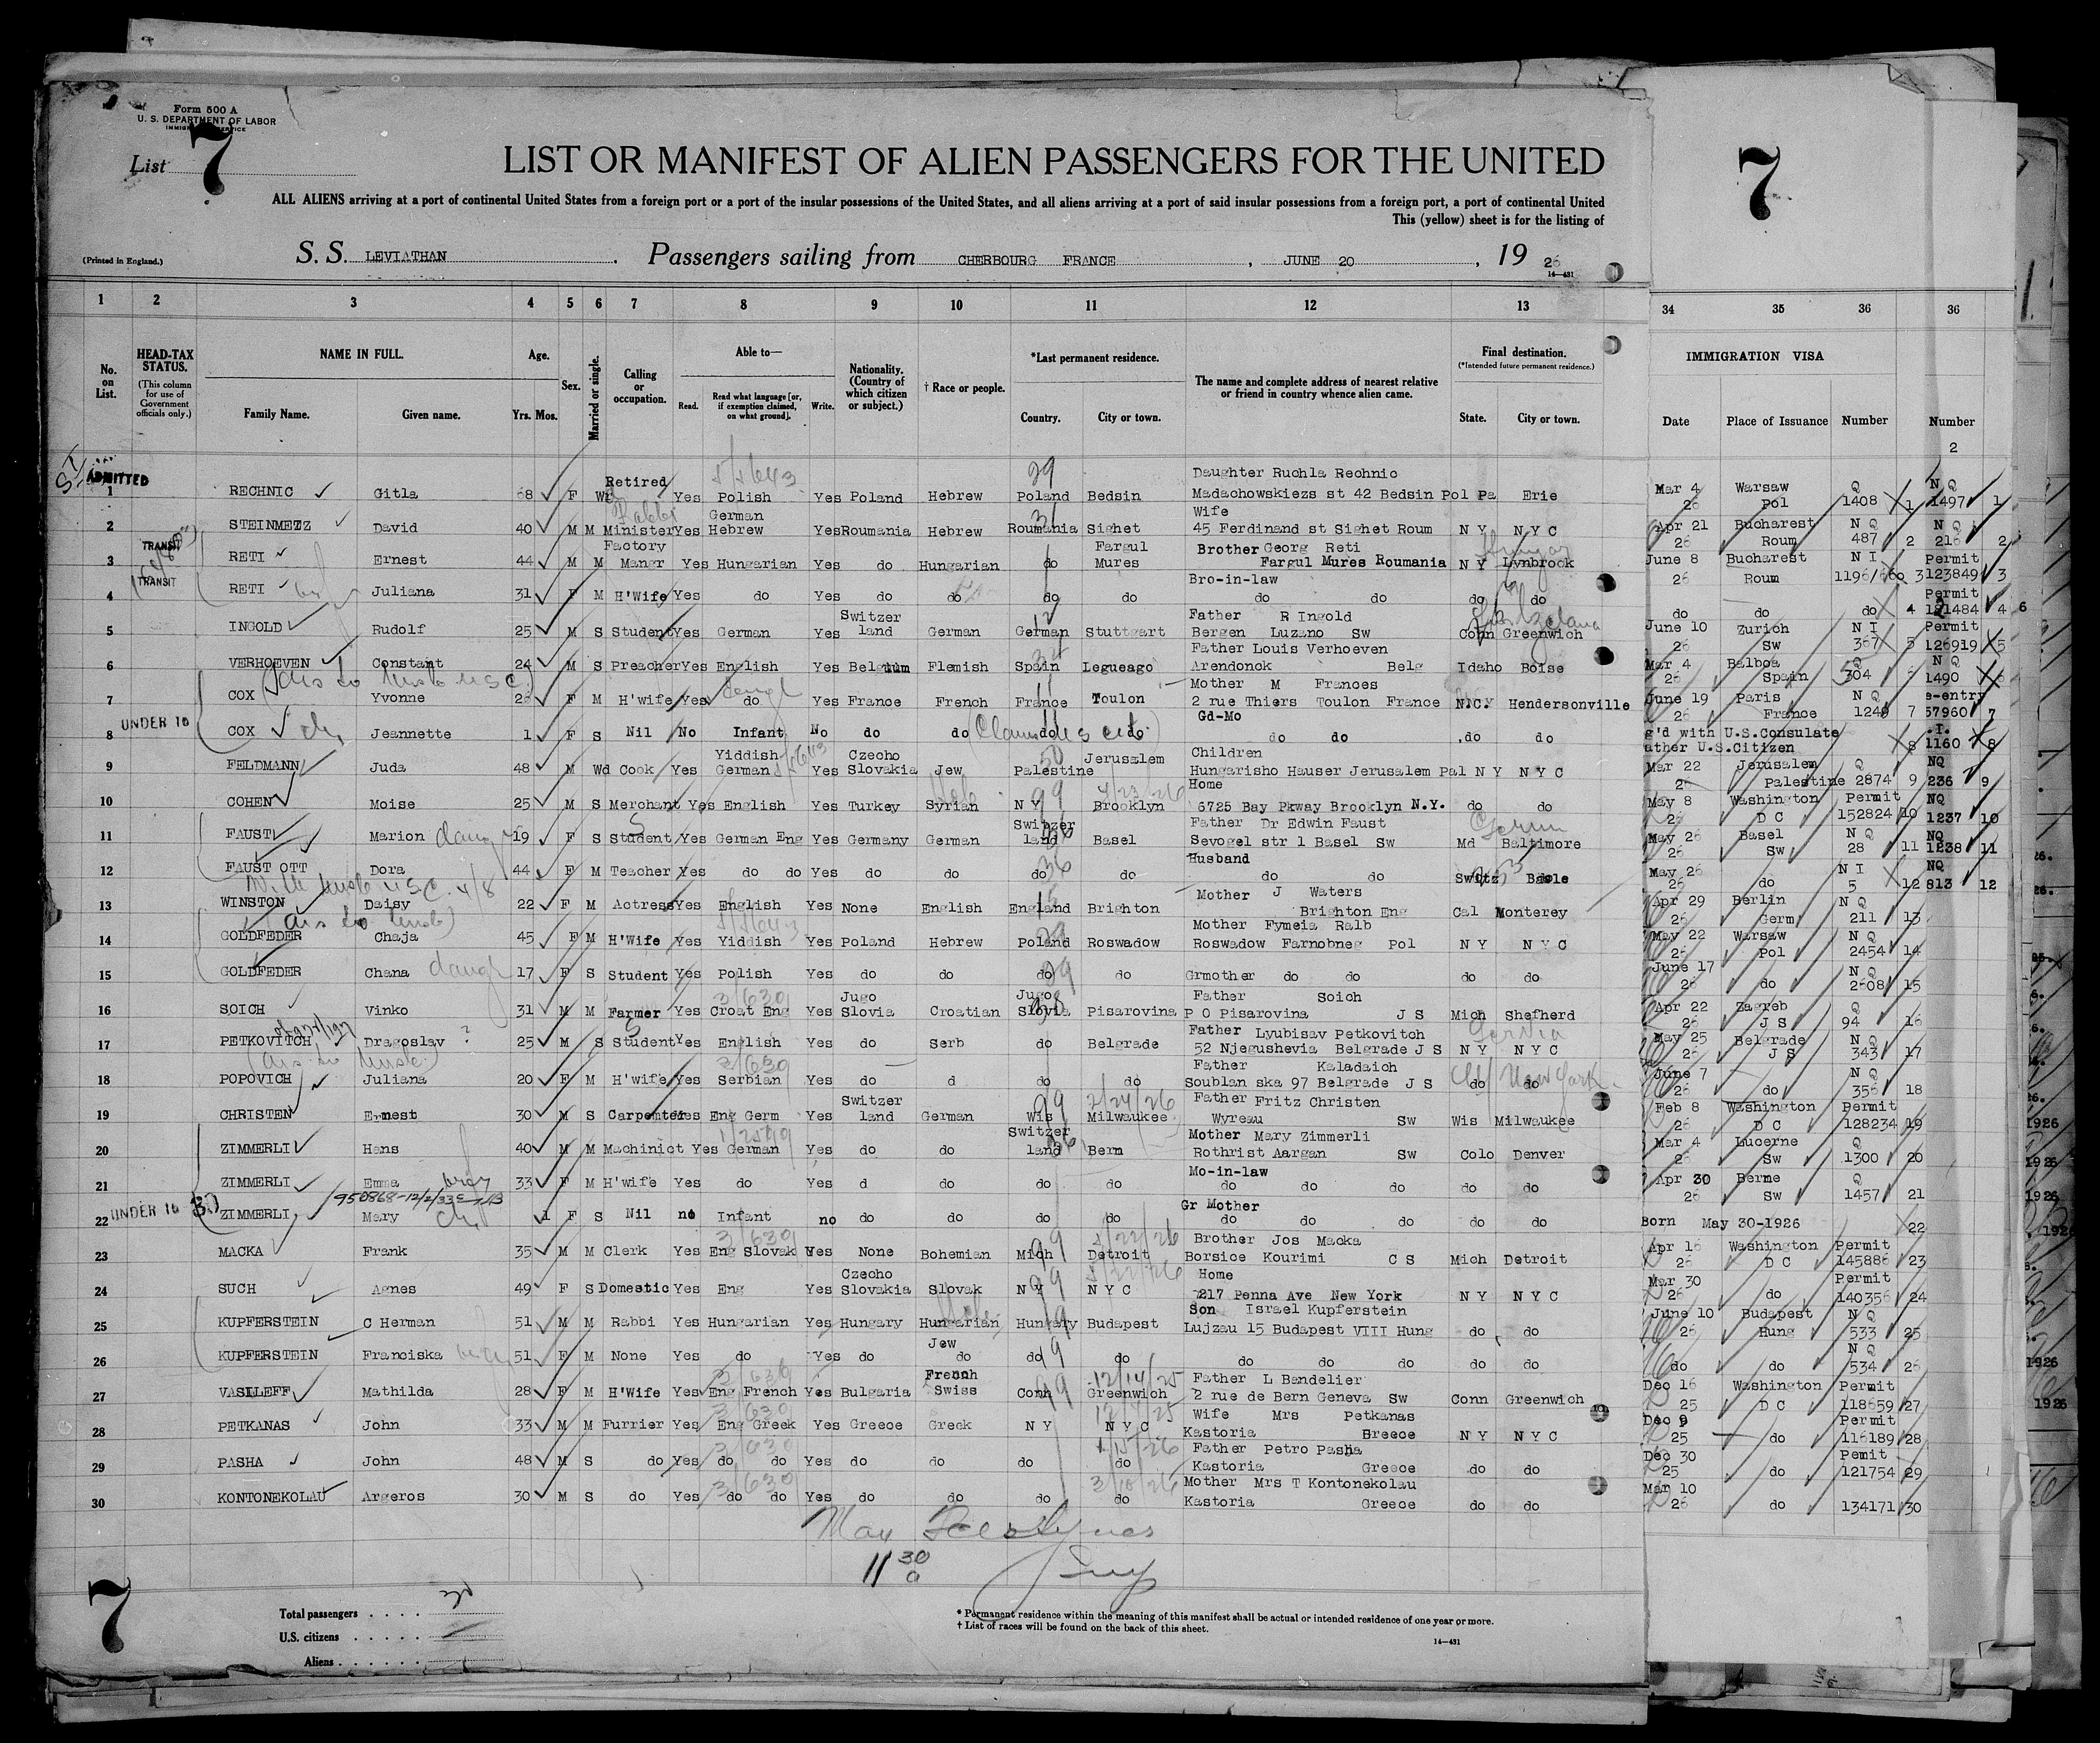 Form 500 A
U. S. DEPARTMENT OF LABOR
IMMIGRATION SERVICE
List 7
7
LIST OR MANIFEST OF ALIEN PASSENGERS FOR THE UNITED
ALL ALIENS arriving at a port of continental United States from a foreign port or a port of the insular possessions of the United States, and all aliens arriving at a port of said insular possessions from a foreign port, a port of continental United
This (yellow) sheet is for the listing of
(Printed in England.)
S. S. LEVIATHAN . Passengers sailing from CHERBOURG FRANCE , JUNE 20 , 19 26
14—431
1 2 3 4 5 6 7 8 9 10 11 12 13 34 35 36 36
No. on List.
HEAD-TAX STATUS.
(This column for use of Government officials only.)
NAME IN FULL.
Family Name. Given name.
Age.
Yrs. Mos.
Sex.
Married or single.
Calling or occupation.
Able to—
Read. Read what language [or, if exemption claimed, on what ground]. Write.
Nationality. (Country of which citizen or subject.)
† Race or people.
*Last permanent residence.
Country. City or town.
The name and complete address of nearest relative or friend in country whence alien came.
Final destination.
(*Intended future permanent residence.)
State. City or town.
IMMIGRATION VISA
Date Place of Issuance Number Number
2
ADMITTED
Retired Daughter Ruchla Rechnic
1 RECHNIC Gitla 68 F Wd Yes Polish Yes Poland Hebrew Poland Bedsin Madachowskiezs st 42 Bedsin Pol Pa Erie Mar 4 26 Warsaw Pol Q 1408 1 N Q 1497 1
Rabbi German Wife
2 STEINMETZ David 40 M M Minister Yes Hebrew Yes Roumania Hebrew Roumania Sighet 45 Ferdinand st Sighet Roum N Y N Y C Apr 21 26 Bucharest Roum N Q 487 2 N Q 216 2
TRANSIT
Factory Fargul Brother Georg Reti
3 RETI Ernest 44 M M Mangr Yes Hungarian Yes do Hungarian do Mures Fargul Mures Roumania N Y Lynbrook June 8 26 Bucharest Roum N I 1196/ 3 Permit 123849 3
TRANSIT
Bro-in-law
4 RETI Juliana 31 F M H'Wife Yes do Yes do do do do do do do do do do do 4 Permit 121484 4 6
Switzer Father R Ingold
5 INGOLD Rudolf 25 M S Student Yes German Yes land German German Stuttgart Bergen Luzano Sw Conn Greenwich June 10 26 Zurich Sw N I 367 5 Permit 126919 5
Father Louis Verhoeven
6 VERHOEVEN Constant 24 M S Preacher Yes English Yes Belgium Flemish Spain Legueago Arendonok Belg Idaho Boise Mar 4 26 Balboa Spain Q 304 N Q 1490 6
Mother M Frances
7 COX Yvonne 26 F M H'wife Yes do Yes France French France Toulon 2 rue Thiers Toulon France N.C. Hendersonville June 19 26 Paris France N Q 1240 7 e-entry 57960 7
UNDER 16
Gd-Mo
8 COX Jeannette 1 F S Nil No Infant No do do do do do do do do g'd with U.S.Consulate ather U.S.Citizen 8 .I. 1160 8
(Claims U S cit.)
Yiddish Czecho Jerusalem Children
9 FELDMANN Juda 48 M Wd Cook Yes German Yes Slovakia Jew Palestine Hungarisho Hauser Jerusalem Pal N Y N Y C Mar 22 26 Jerusalem Palestine Q 2874 9 NQ 236 9
Home
10 COHEN Moise 25 M S Merchant Yes English Yes Turkey Syrian N Y Brooklyn 6725 Bay Pkway Brooklyn N.Y. do do May 8 26 Washington D C Permit 152824 10 NQ 1237 10
Switzer Father Dr Edwin Faust
11 FAUST Marion 19 F S Student Yes German Eng Yes Germany German land Basel Sevogel str 1 Basel Sw Md Baltimore May 26 26 Basel Sw N Q 28 11 NQ 1238 11
Husband
12 FAUST OTT Dora 44 F M Teacher Yes do do Yes do do do do do do Switz Basle May 26 26 do N I 5 12 NQ 813 12
Mother J Waters
13 WINSTON Daisy 22 F M Actress Yes English Yes None English England Brighton Brighton Eng Cal Monterey Apr 29 26 Berlin Germ N Q 211 13
Mother Fymeia Ralb
14 GOLDFEDER Chaja 45 F M H'Wife Yes Yiddish Yes Poland Hebrew Poland Roswadow Roswadow Farnobneg Pol N Y N Y C May 22 26 Warsaw Pol N Q 2454 14
15 GOLDFEDER Chana 17 F S Student Yes Polish Yes do do do do Grmother do do do do June 17 26 do N Q 2608 15
Jugo Jugo Father Soich
16 SOICH Vinko 31 M M Farmer Yes Croat Eng Yes Slovia Croatian Slovia Pisarovina P O Pisarovina J S Mich Shefherd Apr 22 26 Zagreb J S Q 94 16
Father Lyubisav Petkovitch
17 PETKOVITCH Dragoslav ? 25 M S Student Yes English Yes do Serb do Belgrade 52 Njegushevia Belgrade J S N Y N Y C May 25 26 Belgrade J S N Q 343 17
Father Kaladaich
18 POPOVICH Juliana 20 F M H'wife Yes Serbian Yes do d do do Soublan ska 97 Belgrade J S do do New York June 7 26 do N Q 356 18
Switzer Father Fritz Christen
19 CHRISTEN Ernest 30 M S Carpenter Yes Eng Germ Yes land German Wis Milwaukee Wyreau Sw Wis Milwaukee Feb 8 26 Washington D C Permit 128234 19
Switzer Mother Mary Zimmerli
20 ZIMMERLI Hans 40 M M Machinict Yes German Yes do do land Bern Rothrist Aargan Sw Colo Denver Mar 4 26 Lucerne Sw Q 1300 20
Mo-in-law
21 ZIMMERLI Emma 33 F M H'wife Yes do Yes d do do do do do do do do Apr 30 26 Berne Sw Q 1457 21
UNDER 16
Gr Mother
22 ZIMMERLI Mary 1 F S Nil no Infant no do do do do do do do do do Born May 30-1926 22
Brother Jos Macka
23 MACKA Frank 35 M M Clerk Yes Eng Slovak Yes None Bohemian Mich Detroit Borsice Kourimi C S Mich Detroit Apr 16 26 Washington D C Permit 145886 23
Czecho Home
24 SUCH Agnes 49 F S Domestic Yes Eng Yes Slovakia Slovak N Y N Y C 217 Penna Ave New York N Y N Y C Mar 30 26 do Permit 140356 24
Son Israel Kupferstein
25 KUPFERSTEIN C Herman 51 M M Rabbi Yes Hungarian Yes Hungary Hungarian Hungary Budapest Lujzau 15 Budapest VIII Hung do do June 10 26 Budapest Hung N Q 533 25
Jew
26 KUPFERSTEIN Franciska 51 F M None Yes do Yes do do do do do do do do do do do N Q 534 26
French Father L Bandelier
27 VASILEFF Mathilda 28 F M H'Wife Yes Eng French Yes Bulgaria Swiss Conn Greenwich 2 rue de Bern Geneva Sw Conn Greenwich Dec 16 25 Washington D C Permit 118659 27
Wife Mrs Petkanas
28 PETKANAS John 33 M M Furrier Yes Eng Greek Yes Greece Greek N Y N Y C Kastoria Breece N Y N Y C Dec 9 25 do Permit 116189 28
Father Petro Pasha
29 PASHA John 48 M S do Yes do do Yes do do do do Kastoria Greece do do Dec 30 25 do Pemit 121754 29
Mother Mrs T Kontonekolau
30 KONTONEKOLAU Argeros 30 M S do Yes do do Yes do do do do Kastoria Greece do do Mar 10 26 do 134171 30
11 30 a
7
Total passengers . . . . 30
U.S. citizens . . . . . .
Aliens . . . . . . .
* Permanent residence within the meaning of this manifest shall be actual or intended residence of one year or more.
† List of races will be found on the back of this sheet.
14—431